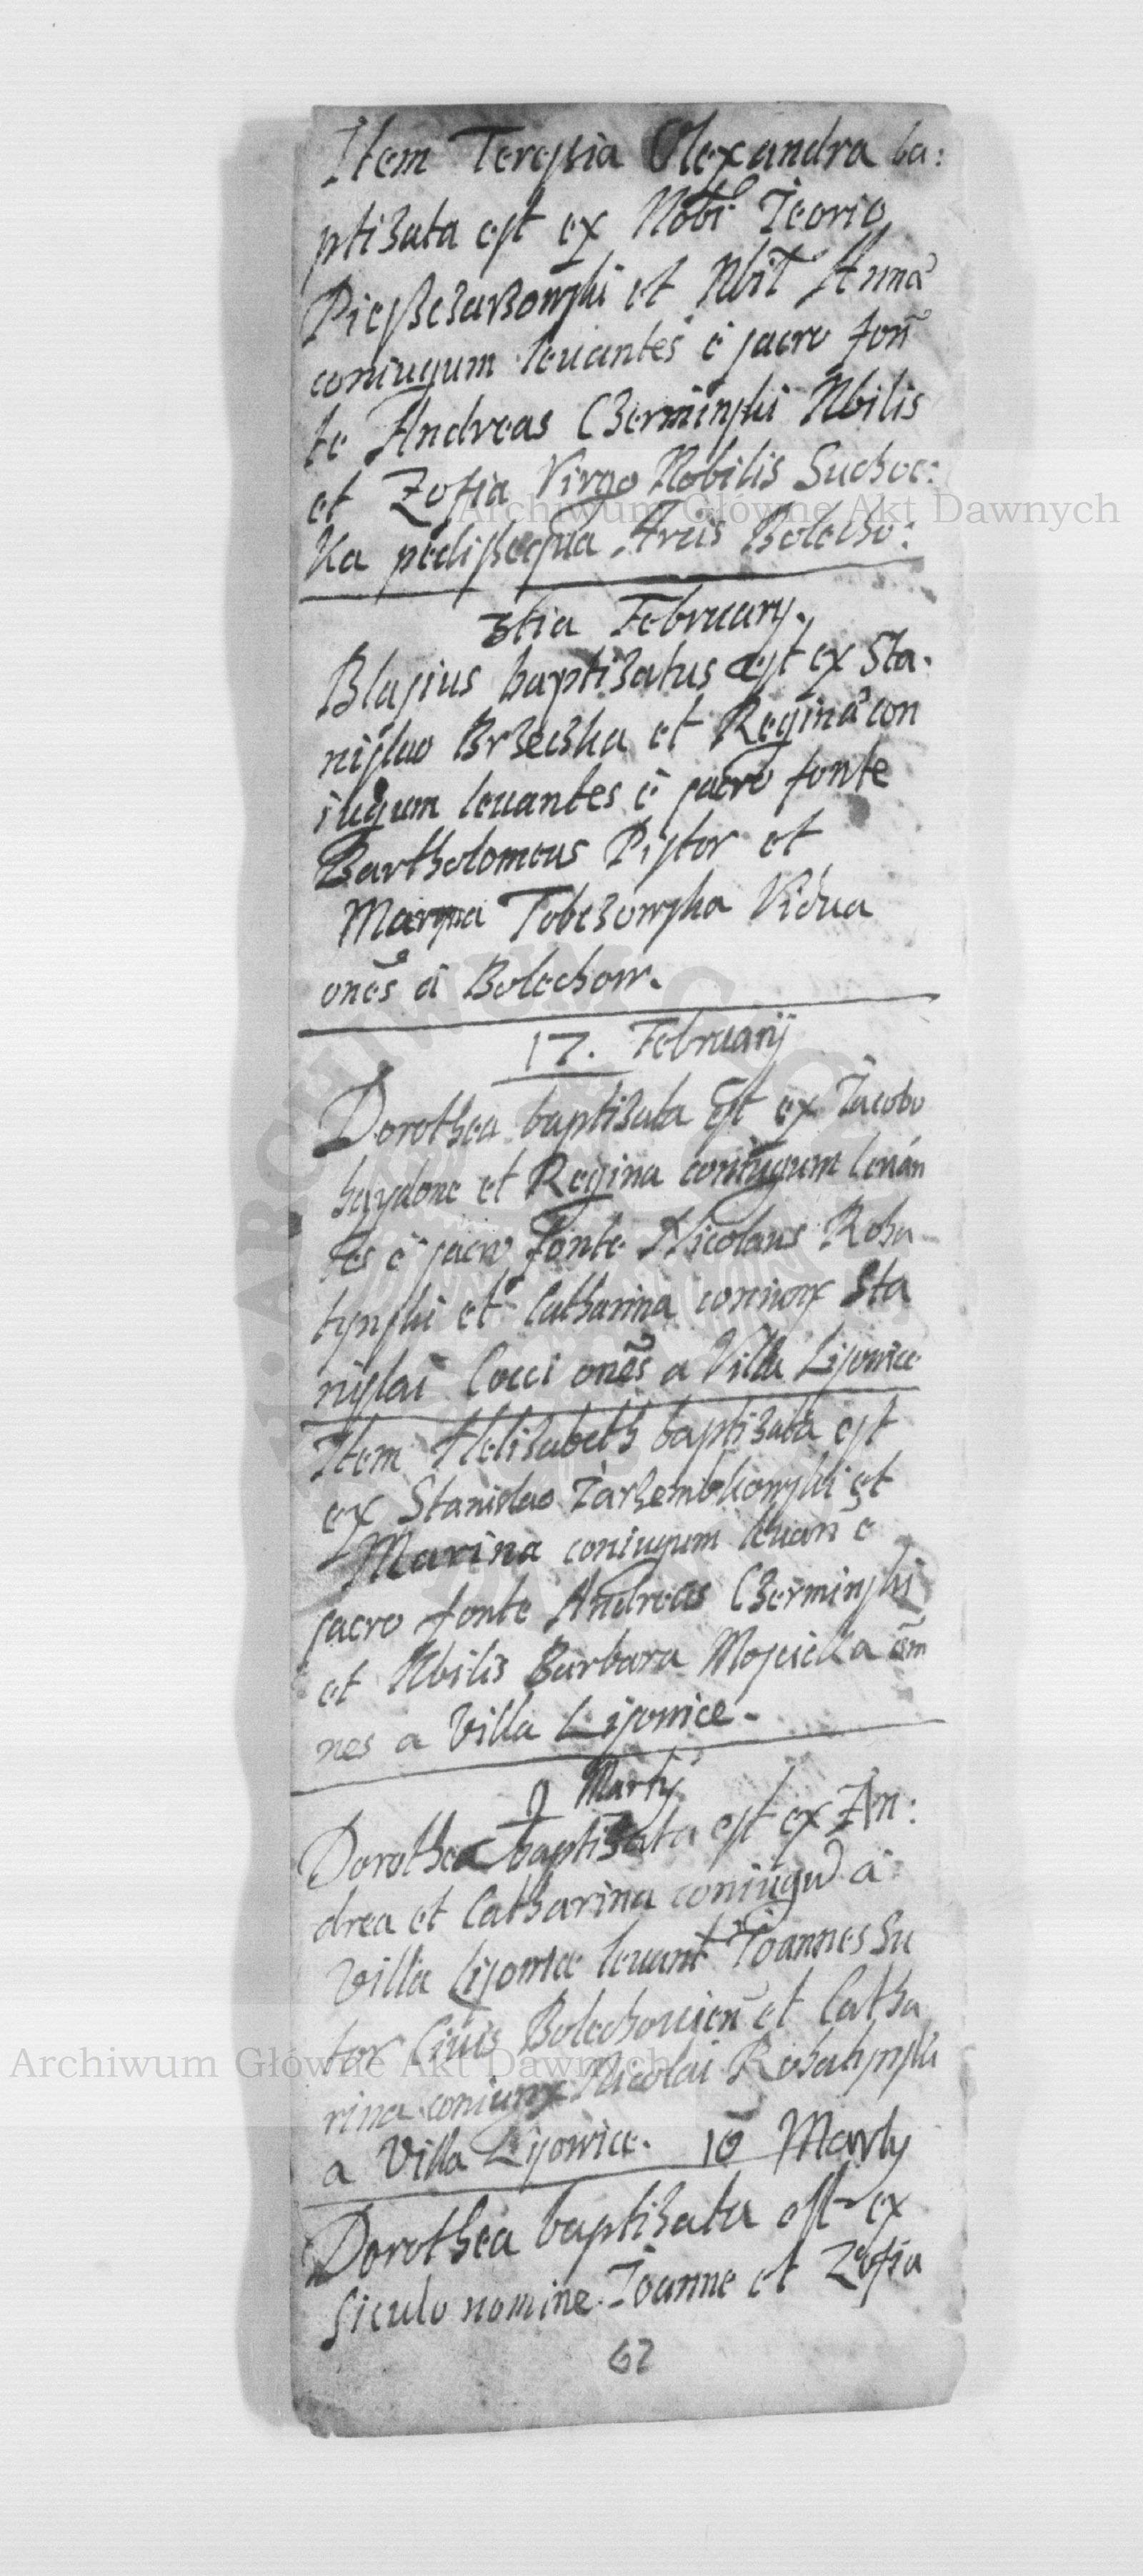 Item Teresia Olexandra ba:
ptizata est ex Nobi: Jeorio
Piesczarzowski et Nbil Anna
coniugum leuantes è sacro fon
te Andreas Czerminski Nbilis
et Zofia Virgo Nobilis Suchoc:
ka pedissequa Arcis Bolecho:
3tia February.
Blasius baptizatus est ex Sta.
nislao Brzeczka et Reginâ con
iugum leuantes è sacro fonte
Bartholomeus Pistor et
Maryna Tobczowska Vidua
onēs â Bolechow.
17. Februarij
Dorothea baptizata est ex Jacobo
haydone et Regina coniugum leuan
tes è sacro fonte Nicolaus Roha
tynski et Catharina coniunx Sta
nislai Cocci onēs a Villa Lisowice
Item Helizabeth baptizata est
ex Stanislao Jarzembkowski et
Marina coniugum leuan è
sacro fonte Andreas Czerminski
et Nbilis Barbara Moscicka om
nes a Villa Lisowice.
9 Martij
Dorothea baptizata est ex An:
drea et Catharina coniugū a
Villa Lisowice leuant Joannes Su
tor Ciuis Bolechouien et Catha
rina coniunx Nicolai Rohatynski
a Villa Lisowice. 10 Martij
Dorothea baptizata est ex
Siculo nomine Joanne et Zofia
62
Archiwum Główne Akt Dawnych
Archiwum Główne Akt Dawnych